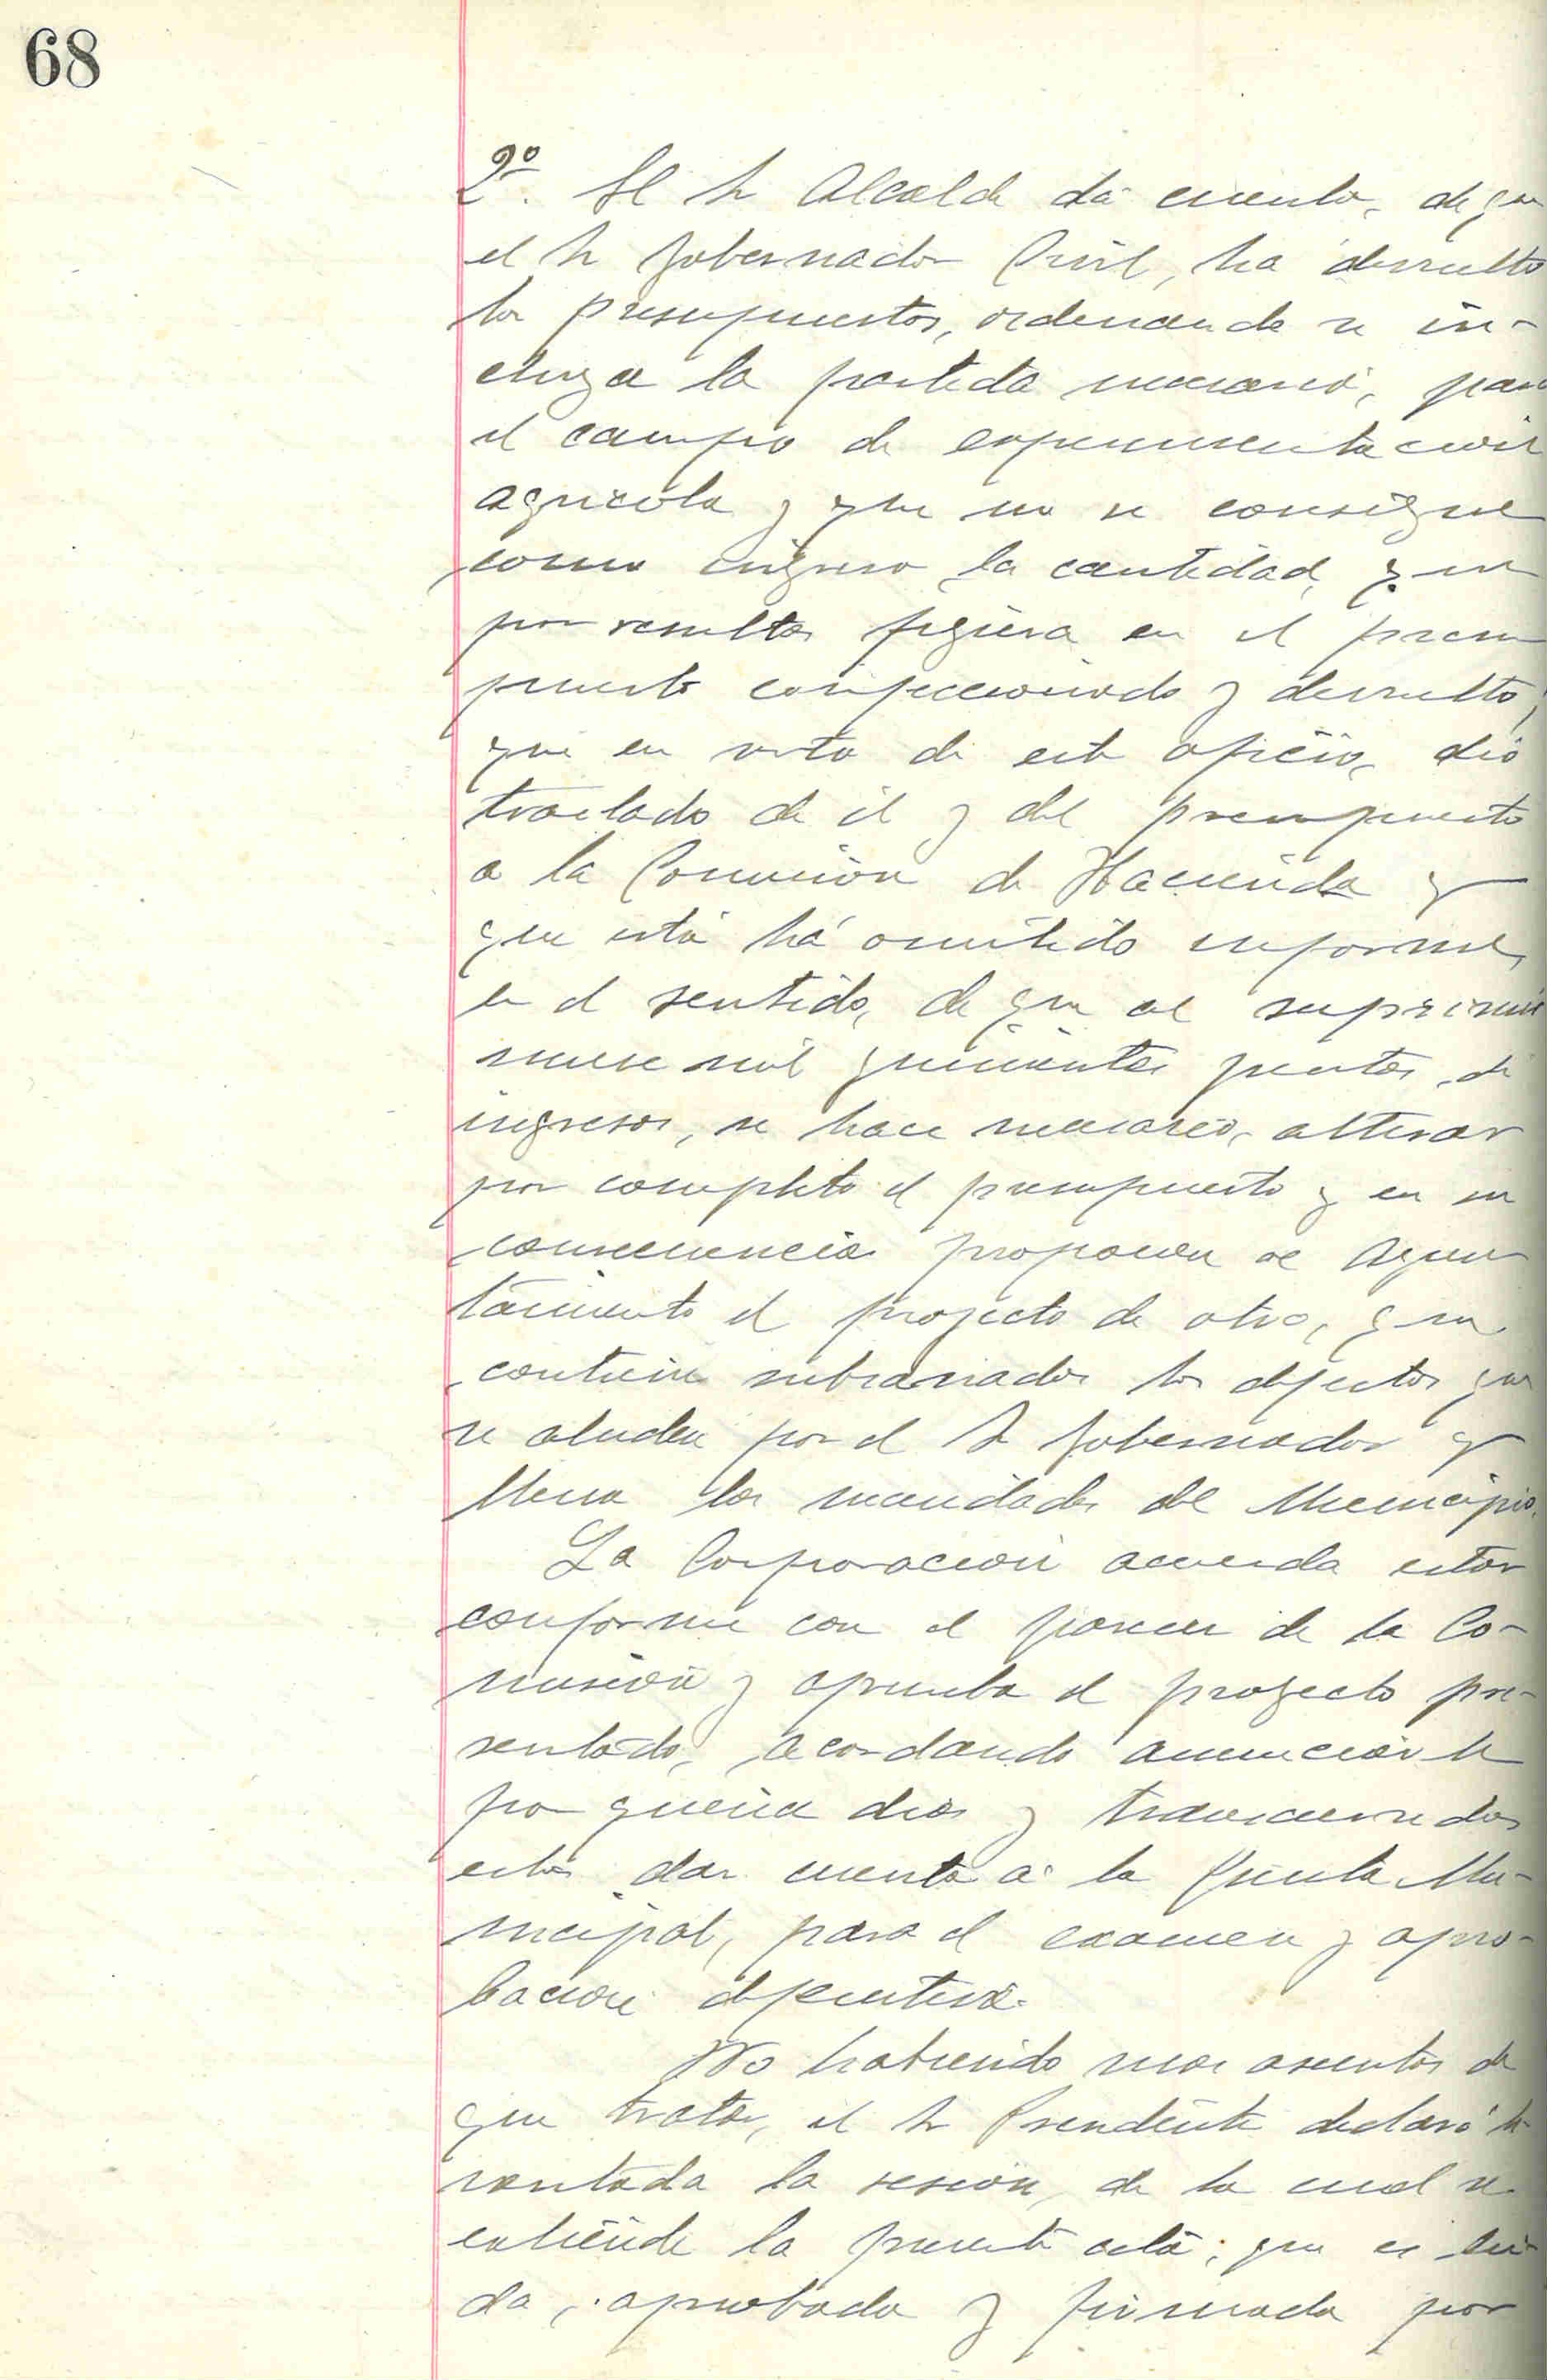 68
2º. El Sr Alcalde dá cuenta, de que
el Sr Gobernador Civil, ha devuelto
los presupuestos, ordenando se in-
cluya la partida necesaria, para
el campo de experimentacion
agricola y que no se consigne
como ingreso la cantidad, que
por resultas figura en el presu
puesto confeccionado y devuelto;
que en vista de este oficio, dió
traslado de él y del presupuesto
a la Comision de Hacienda y
que está há omitido informe,
en el sentido, de que al suprimir
nueve mil quinientas pesetas, de
ingresos, se hace necesario, alterar
por completo el presupuesto y en su
consecuencia proponen al Ayun
tamiento el proyecto de otro, que
contiene subsanados los defectos que
se aluden por el Sr Gobernador y
llena las necesidades del Municipio.
La Corporación acuerda estar
conforme con el parecer de la Co-
mision y aprueba el proyecto pre-
sentado, acordando anunciarle
por quince dias y transcurridos
estos dar cuenta a la Junta Mu-
nicipal, para el examen y apro-
bacion definitiva.
No habiendo mas asuntos de
que tratar, el Sr Presidente declaró le-
vantada la sesion, de la cual se
extiende la presente acta; que es lei-
da, aprobada y firmada por